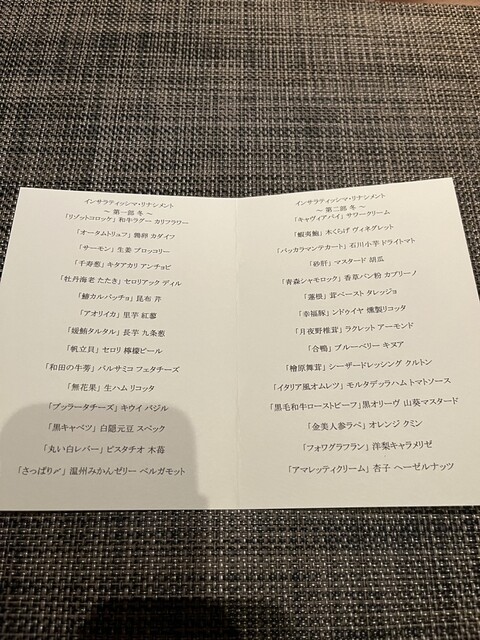 インサラティッシマ・リナシメント
～ 第一部 冬 ～
「リゾットコロッケ」 和牛ラグー カリフラワー
「オータムトリュフ」 鶏卵 カダイフ
「サーモン」 生姜 ブロッコリー
「千寿葱」 キタアカリ アンチョビ
「牡丹海老 たたき」 セロリアック ディル
「鰆カルパッチョ」 昆布 芹
「アオリイカ」 里芋 紅蓼
「鮪タルタル」 長芋 九条葱
「帆立貝」 セロリ 檸檬ピール
「和田の牛蒡」 バルサミコ フェタチーズ
「無花果」 生ハム リコッタ
「ブッラータチーズ」 キウイ バジル
「黒キャベツ」 白隠元豆 スペック
「丸い白レバー」 ピスタチオ 木苺
「さっぱり〆」 温州みかんゼリー ベルガモット
インサラティッシマ・リナシメント
～ 第二部 冬 ～
「キャヴィアパイ」 サワークリーム
「蝦夷鮑」 木くらげ ヴィネグレット
「バッカラマンテカート」 石川小芋 ドライトマト
「砂肝」 マスタード 胡瓜
「青森シャモロック」 香草パン粉 カプリーノ
「蓮根」 茸ペースト タレッジョ
「幸福豚」 ンドゥイヤ 燻製リコッタ
「月夜野椎茸」 ラクレット アーモンド
「合鴨」 ブルーベリー キヌア
「檜原舞茸」 シーザードレッシング クルトン
「イタリア風オムレツ」 モルタデッラハム トマトソース
「黒毛和牛ローストビーフ」 黒オリーヴ 山葵マスタード
「金美人参ラペ」 オレンジ クミン
「フォワグラフラン」 洋梨キャラメリゼ
「アマレッティクリーム」 杏子 ヘーゼルナッツ